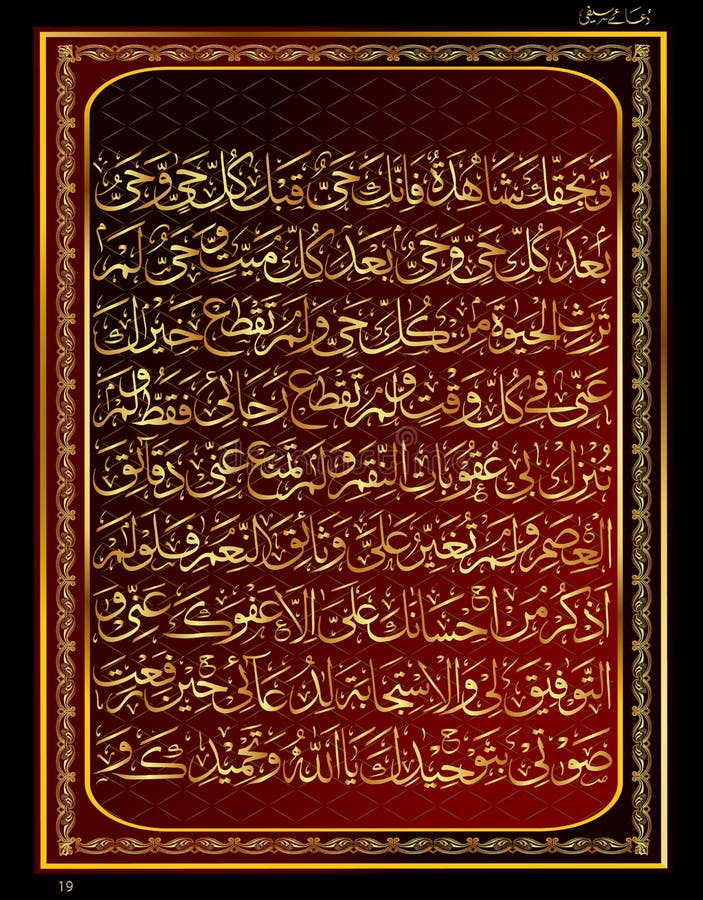 دُعائے سیفی
وَّبِحَقِّكَ شَاهِدَةٌ فَاِنَّكَ حَیٌّ قَبْلَ كُلِّ حَیٍّ وَّحَیٌّ
بَعْدَ كُلِّ حَیٍّ وَّحَیٌّ بَعْدَ كُلِّ مَيِّتٍ وَّحَیٌّ لَمْ
تَرِثِ الْحَيٰوةَ مِنْ كُلِّ حَیٍّ وَلَمْ تَقْطَعْ خَيْرَاكَ
عَنِّیْ فِیْ كُلِّ وَقْتٍ وَّلَمْ تَقْطَعْ رَجَائِیْ فَقَطُّ وَلَمْ
تُنْزِلْ بِیْ عُقُوْبَاتِ النِّقَمِ وَلَمْ تَمْنَعْ عَنِّیْ دَقَآئِقَ
الْعِصَمِ وَلَمْ تُغَيِّرْ عَلَیَّ وَثَائِقَ النِّعَمِ فَلَوْ لَمْ
اَذْكُرْ مِنْ اِحْسَانِكَ عَلَیَّ اِلَّا عَفْوَكَ عَنِّیْ وَ
التَّوْفِيْقَ لِیْ وَالْاِسْتِجَابَةَ لِدُعَآئِیْ حِيْنَ رَفَعْتُ
صَوْتِیْ بِتَوْحِيْدِكَ يَا اَللّٰهُ وَتَحْمِيْدِكَ وَ
dreamstime
19